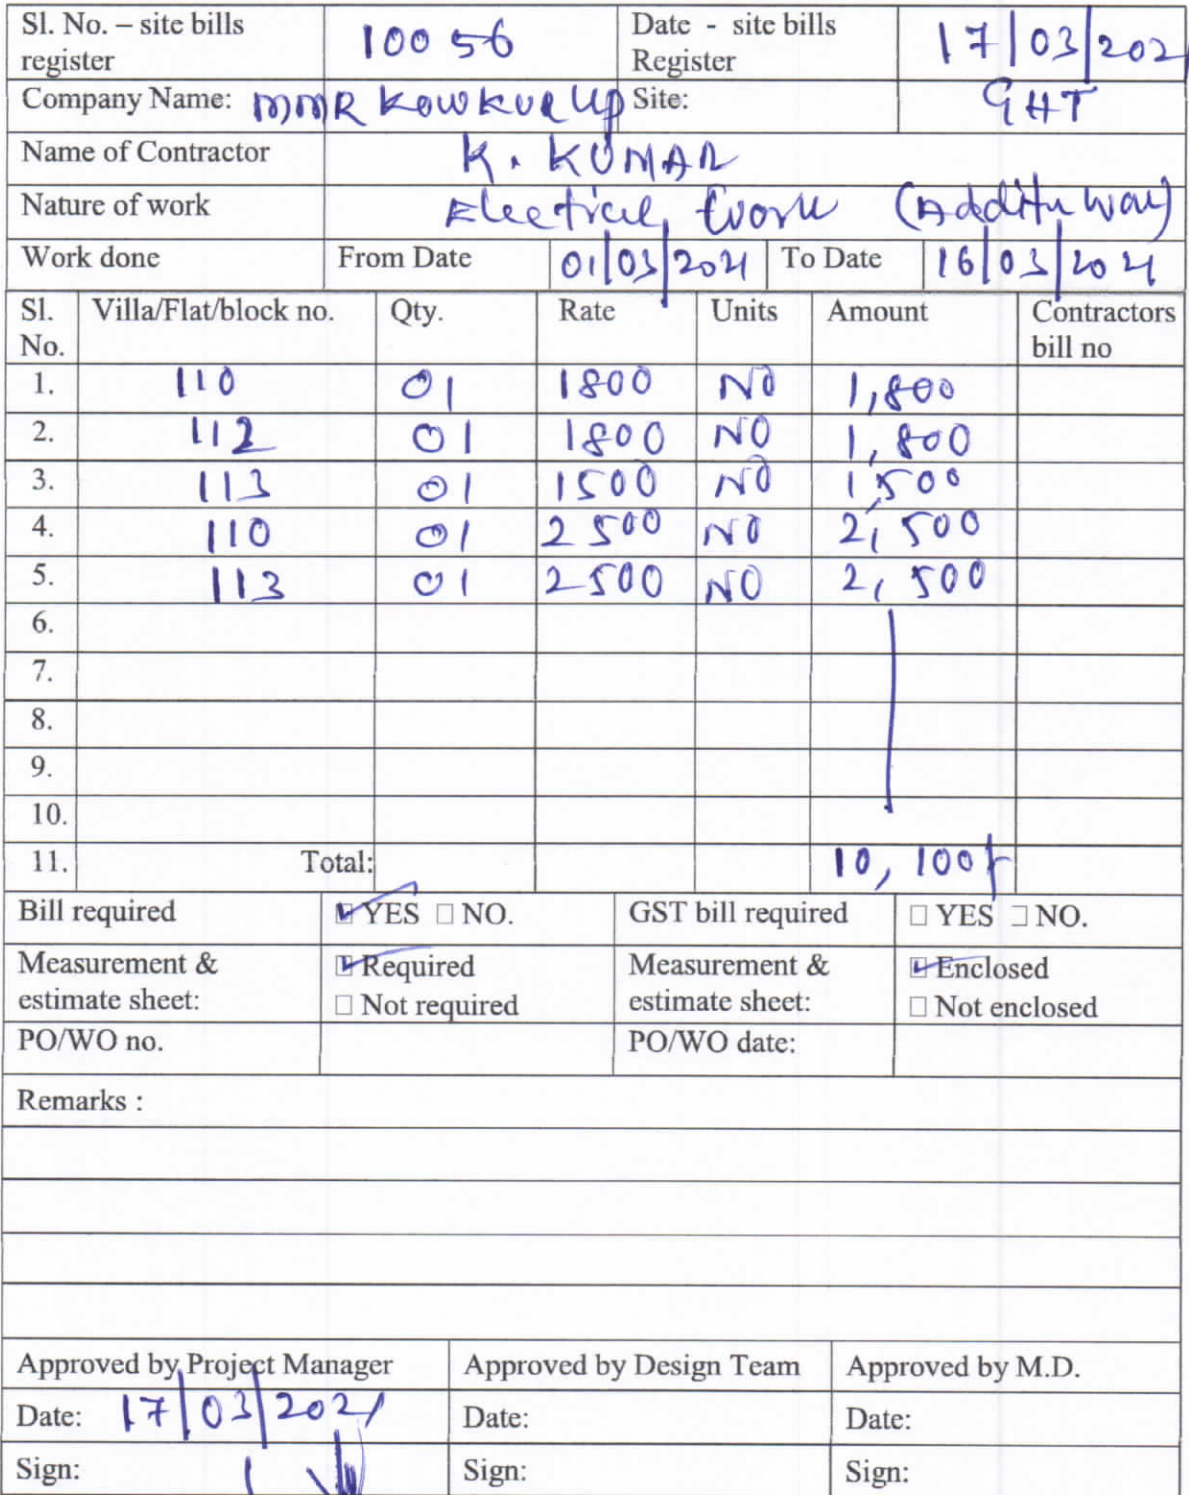 Sl. No. – site bills register 10056 Date - site bills Register 17/03/202
Company Name: MMR Kowkur llp Site: GHT
Name of Contractor K. KUMAR
Nature of work Electrical work
Work done From Date 01/03/2021 To Date 16/03/2021
Sl. No. Villa/Flat/block no. Qty. Rate Units Amount Contractors bill no
1. 110 01 1800 NO 1,800
2. 112 01 1800 NO 1,800
3. 113 01 1500 NO 1,500
4. 110 01 2500 NO 2,500
5. 113 01 2500 NO 2,500
6.
7.
8.
9.
10.
11. Total: 10,100/-
Bill required ☑ YES ☐ NO. GST bill required ☐ YES ☐ NO.
Measurement & estimate sheet: ☑ Required ☐ Not required Measurement & estimate sheet: ☑ Enclosed ☐ Not enclosed
PO/WO no. PO/WO date:
Remarks :
Approved by Project Manager Approved by Design Team Approved by M.D.
Date: 17/03/2021 Date: Date:
Sign: Sign: Sign: